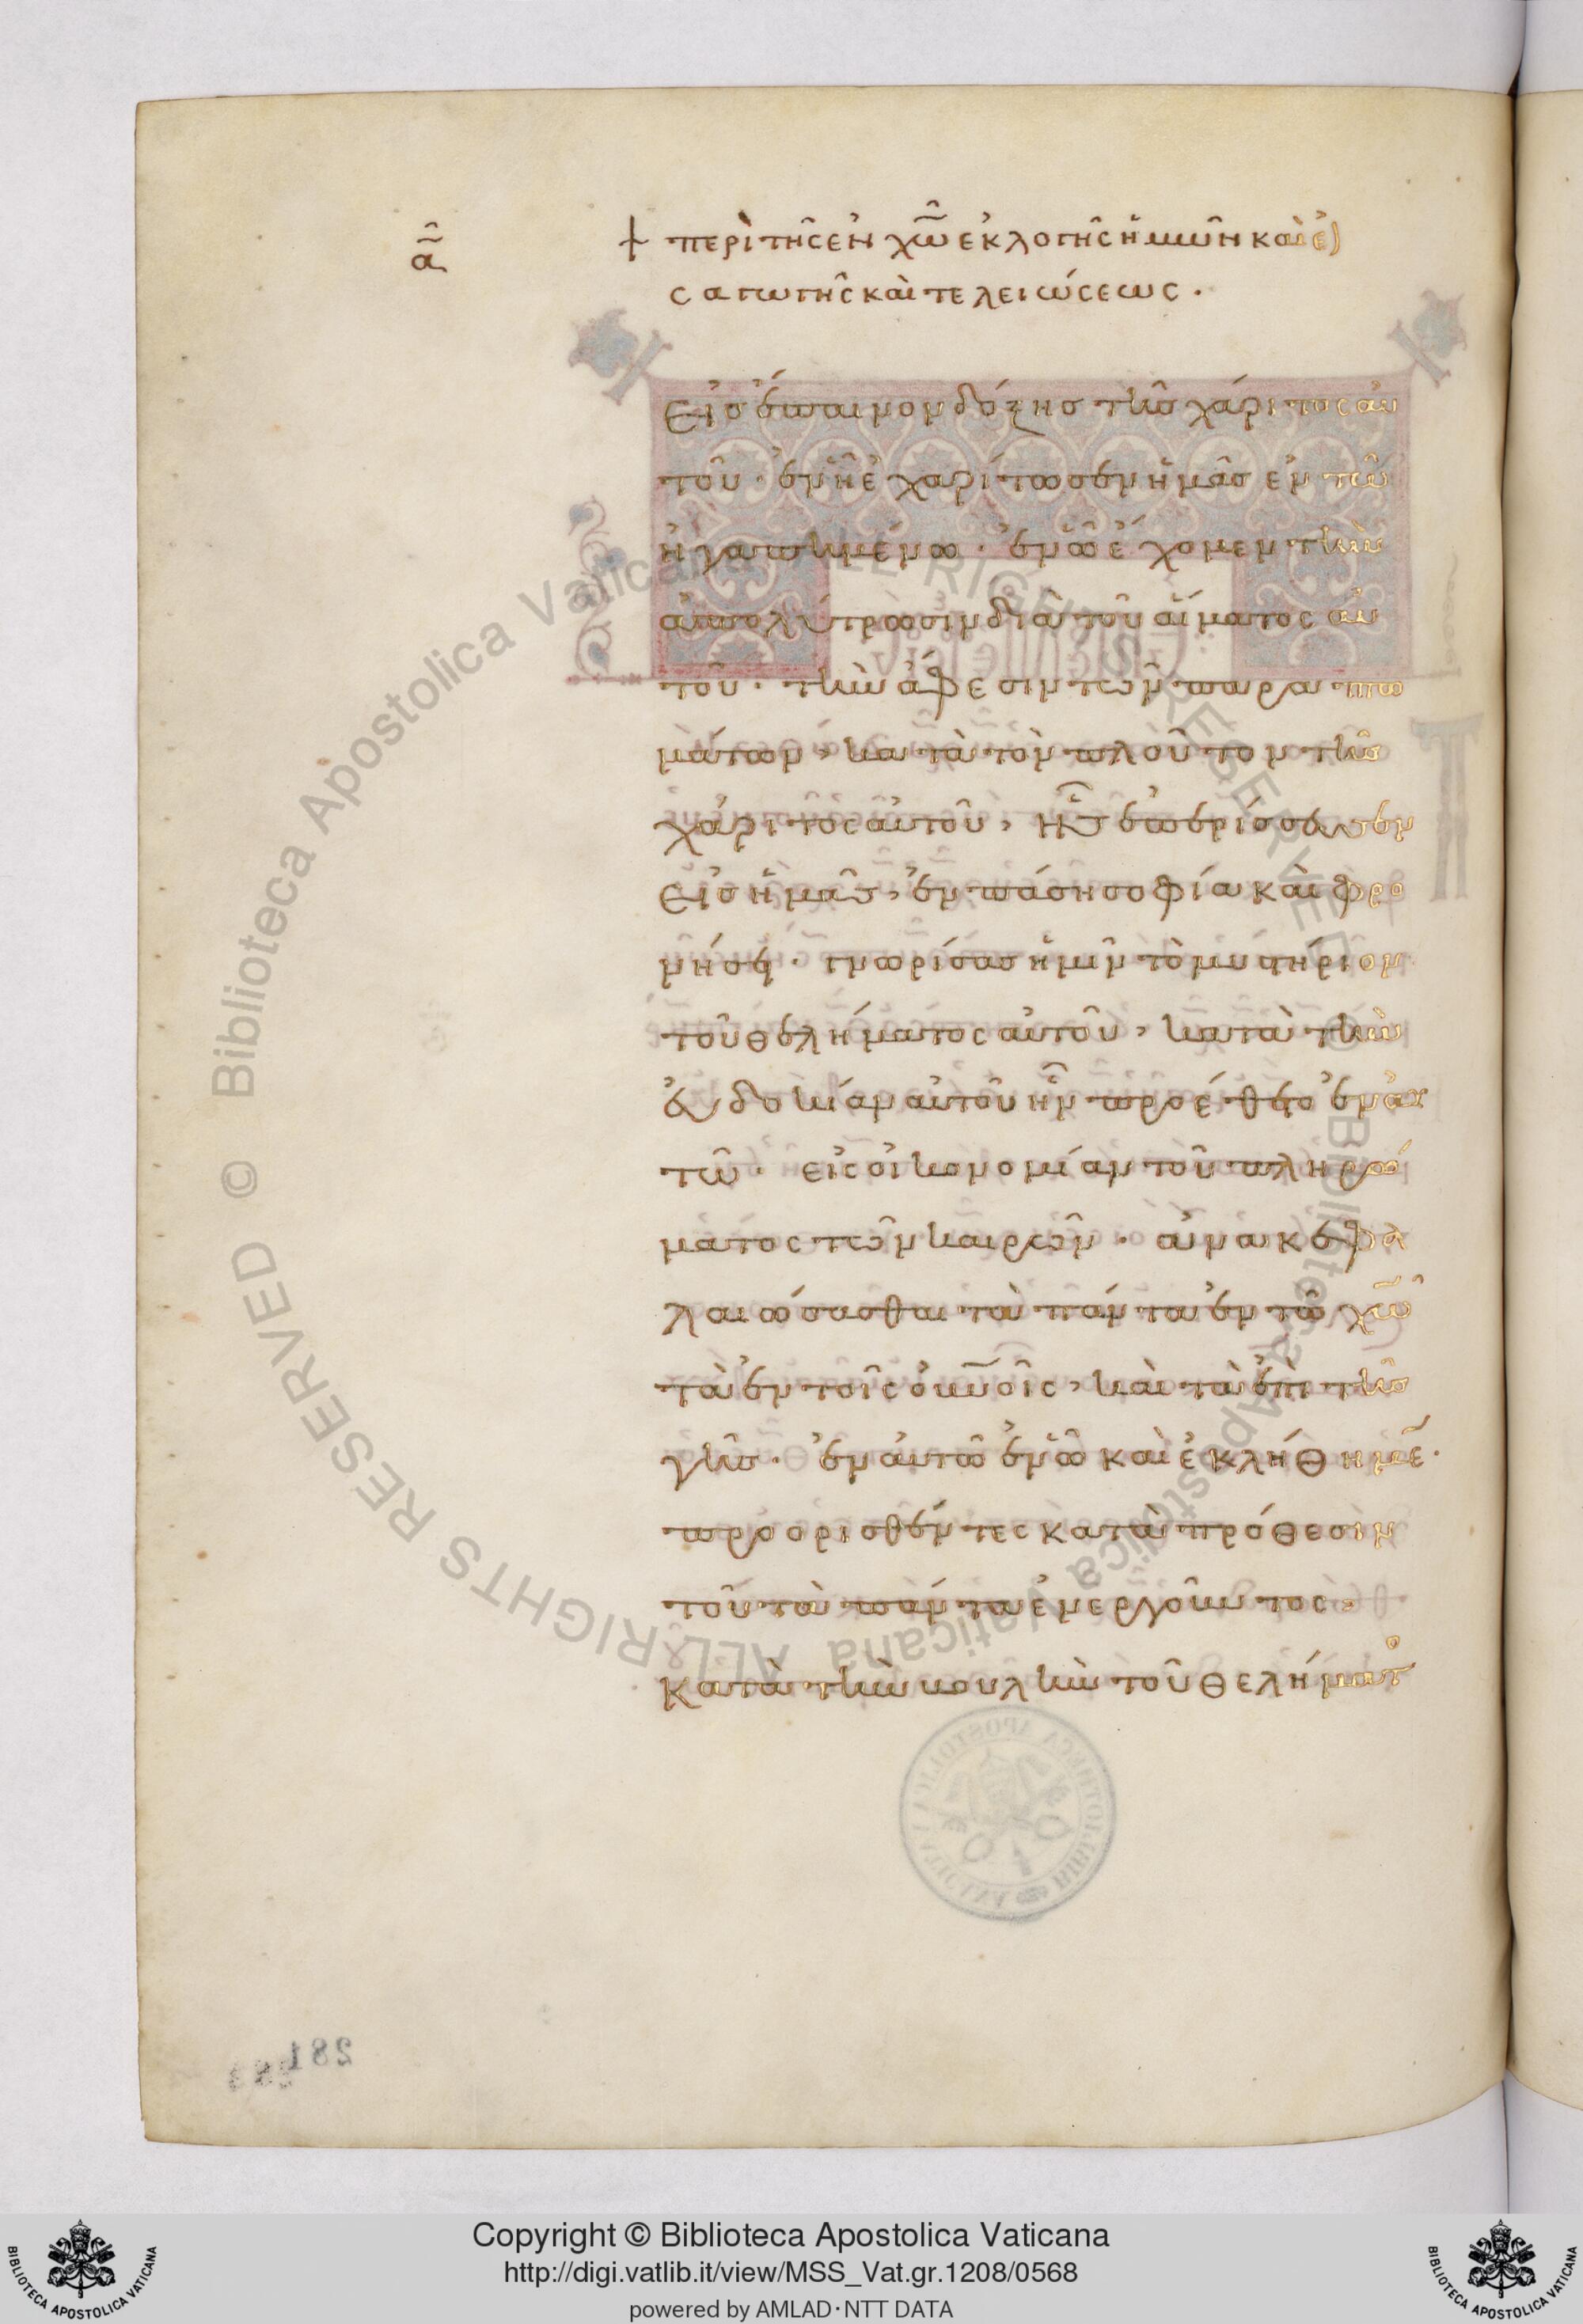 α
† περὶ τῆς ἐν χῶ ἐκλογῆς ἡμῶν καὶ εἰ
σαγωγῆς καὶ τελειώσεως.
εἰς ἔπαινον δόξης τῆς χάριτος αὐ
τοῦ. ἐν ἧ ἐχαρίτωσεν ἡμᾶς ἐν τῶ
ἠγαπημένω. ἐν ὧ ἔχομεν τὴν
ἀπολύτρωσιν διὰ τοῦ αἵματος αὐ
τοῦ. τὴν ἄφεσιν τῶν παραπτω
μάτων, κατὰ τὸν πλοῦτον τῆς
χάριτος αὐτοῦ, ἧς ἐπερίσσευσεν
εἰς ἡμᾶς, ἐν πάση σοφία καὶ φρο
νήσει. γνωρίσας ἡμῖν τὸ μυστήριον
τοῦ θελήματος αὐτοῦ, κατὰ τὴν
εὐδοκίαν αὐτοῦ ἣν προέθετο ἐν αὐ
τῶ. εἰς οἰκονομίαν τοῦ πληρώ
ματος τῶν καιρῶν. ἀνακεφα
λαιώσασθαι τὰ πάντα ἐν τῶ χῶ
τὰ ἐν τοῖς οὐνοῖς, καὶ τὰ ἐπὶ τῆς
γῆς. ἐν αὐτῶ ἐν ὧ καὶ ἐκλήθημε.
προορισθέντες κατὰ πρόθεσιν
τοῦ τὰ πάντα ἐνεργοῦντος,
κατὰ τὴν βουλὴν τοῦ θελήματο
281
Copyright © Biblioteca Apostolica Vaticana
http://digi.vatlib.it/view/MSS_Vat.gr.1208/0568
powered by AMLAD·NTT DATA
BIBLIOTECA APOSTOLICA VATICANA
BIBLIOTECA APOSTOLICA VATICANA
© Biblioteca Apostolica Vaticana ALL RIGHTS RESERVED © Biblioteca Apostolica Vaticana ALL RIGHTS RESERVED